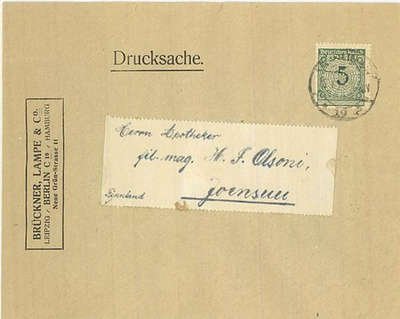 Drucksache.
Deutsches Reich
5
BRÜCKNER, LAMPE & Co.
LEIPZIG / BERLIN C 19 / HAMBURG
Neue Grün-Strasse 11
Herrn Apotheker
fil. mag. W. F. Olsoni,
Joensuu
Finnland